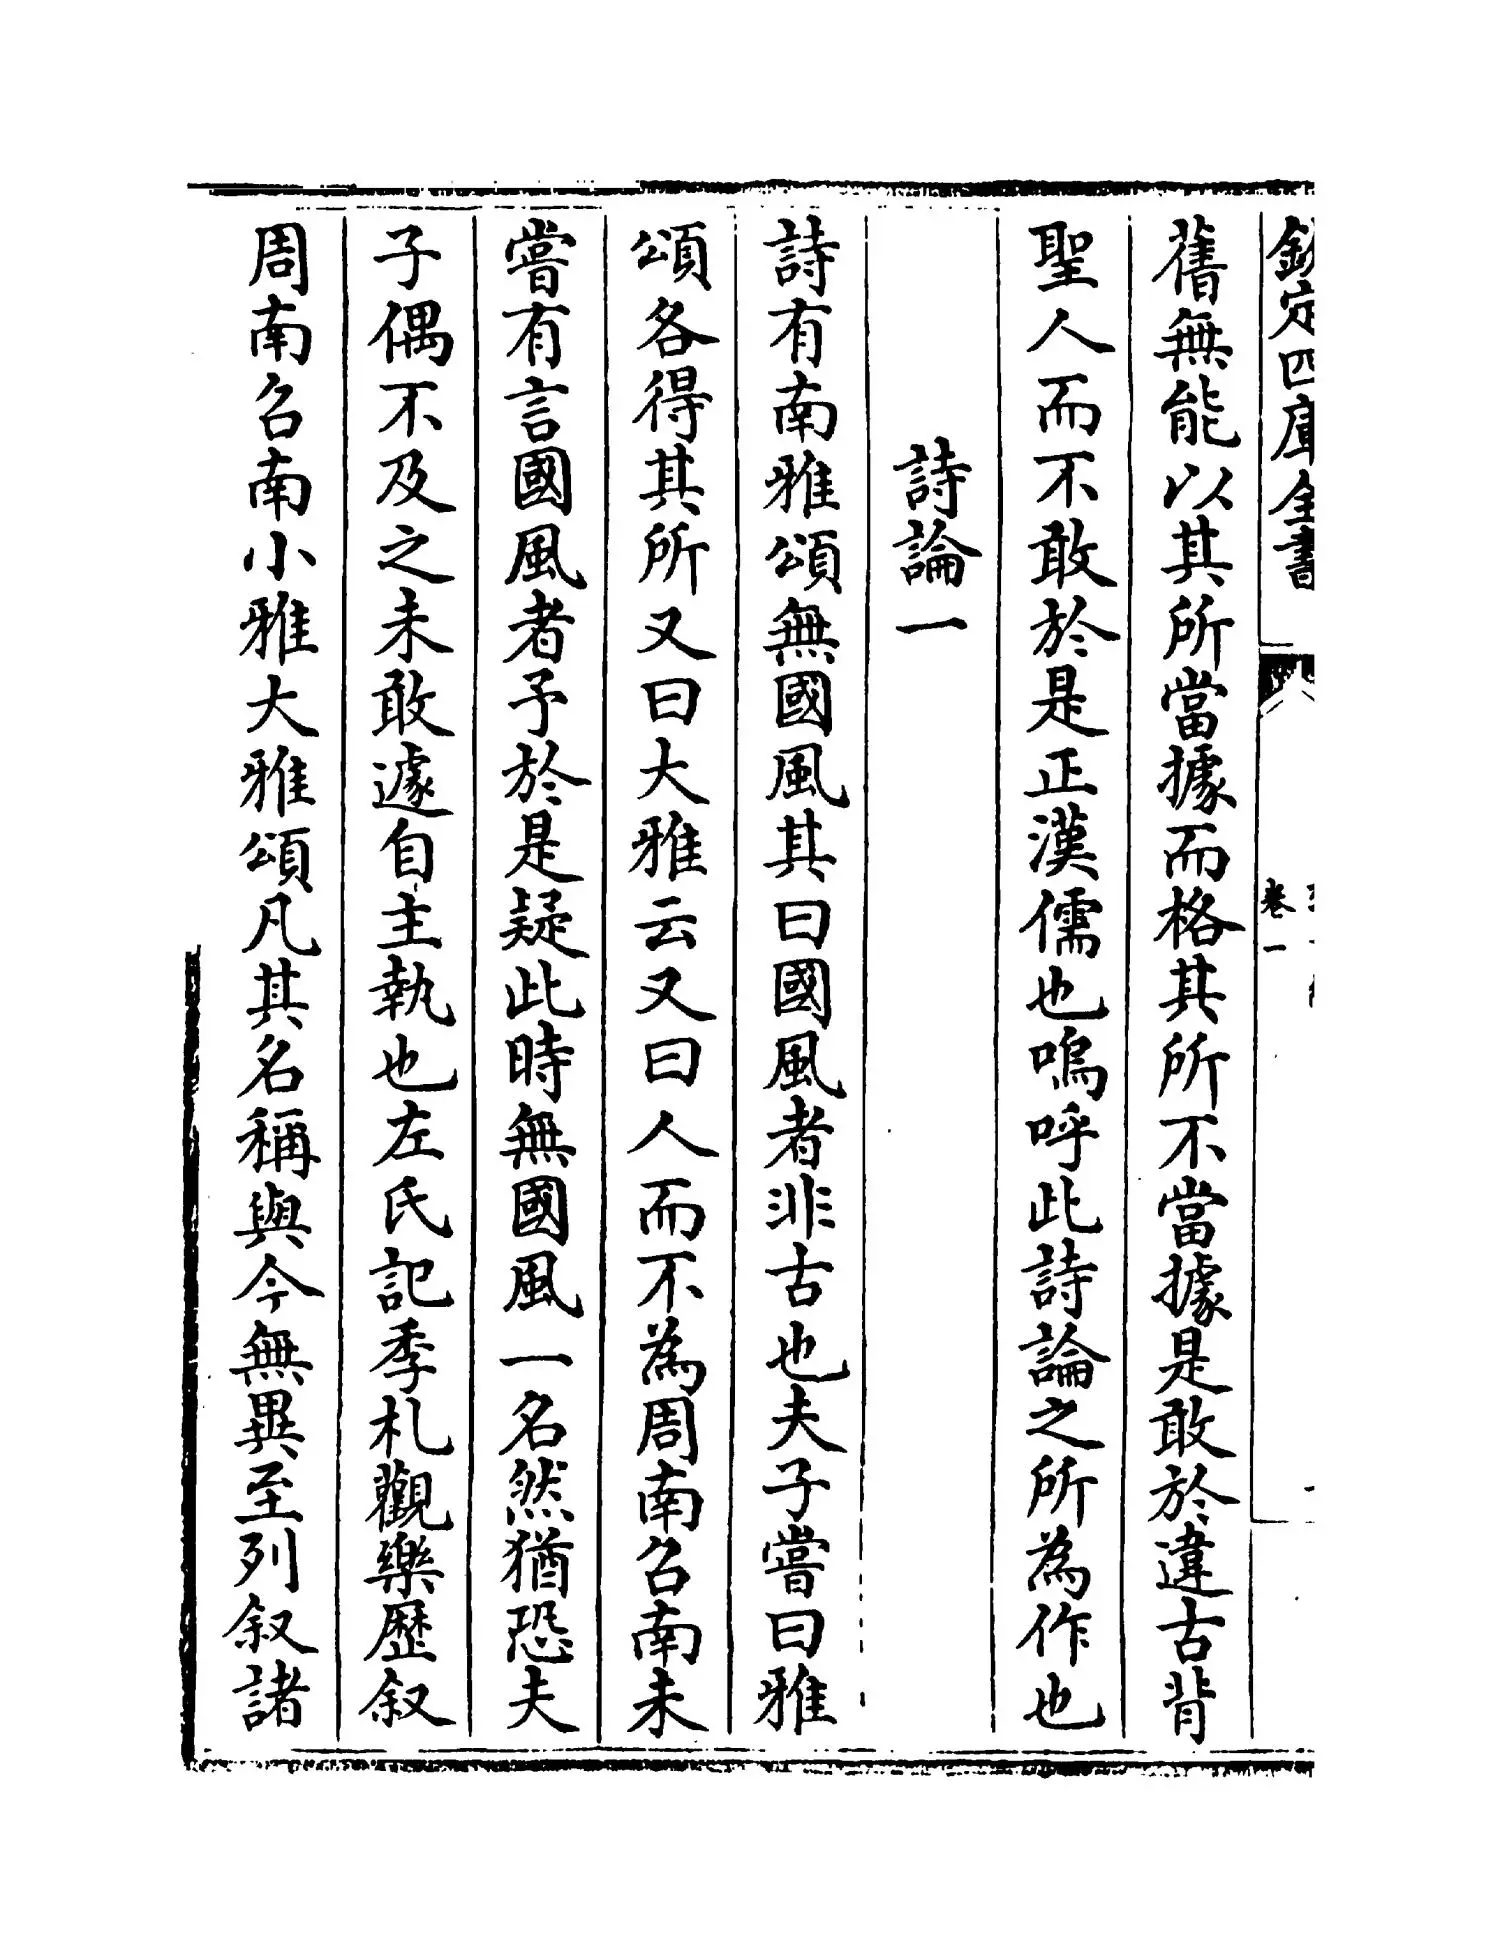 欽定四庫全書
卷一
舊無能以其所當據而格其所不當據是敢於違古背
聖人而不敢於是正漢儒也嗚呼此詩論之所為作也
詩論一
詩有南雅頌無國風其曰國風者非古也夫子嘗曰雅
頌各得其所又曰大雅云又曰人而不為周南召南未
嘗有言國風者予於是疑此時無國風一名然猶恐夫
子偶不及之未敢遽自主執也左氏記季札觀樂歷叙
周南召南小雅大雅頌凡其名稱與今無異至列叙諸